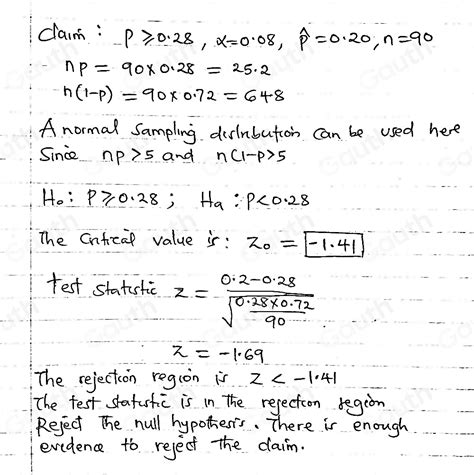 Claim : P ≥ 0.28 , α = 0.08, p̂ = 0.20, n = 90
np = 90 × 0.28 = 25.2
n(1-p) = 90 × 0.72 = 648
A normal sampling distribution can be used here
Since np > 5 and n(1-p > 5
H₀ : P ≥ 0.28 ; Ha : P < 0.28
The Critical value is : Z₀ = -1.41
test statistic z = (0.2 - 0.28) / √(0.28 × 0.72 / 90)
z = -1.69
The rejection region is z < -1.41
The test statistic is in the rejection region
Reject the null hypothesis. There is enough
evidence to reject the claim.